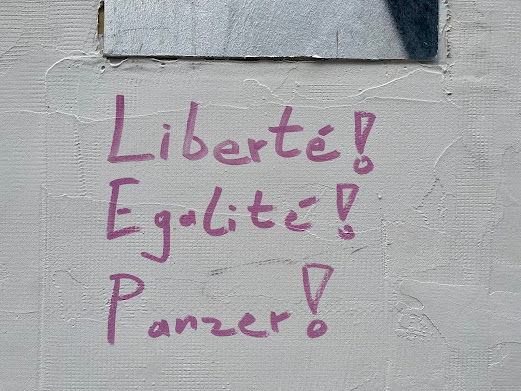 Liberté!
Egalité!
Panzer!